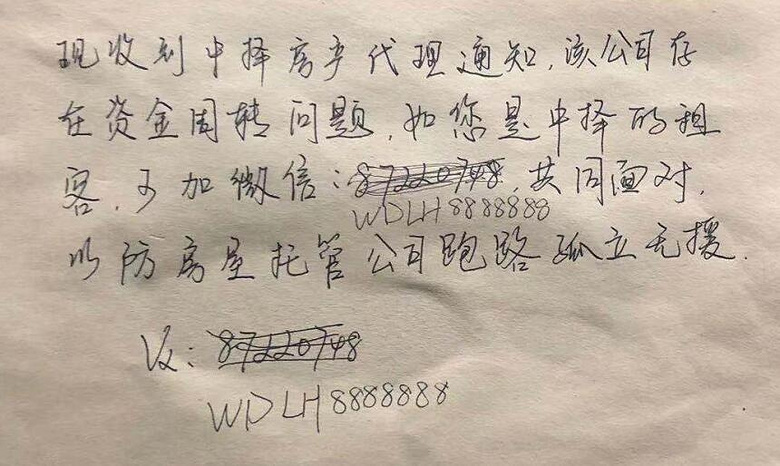 现收到中择房产代理通知,该公司存
在资金周转问题,如您是中择的租
客,可加微信:87220748,共同面对,
WDLH8888888
以防房屋托管公司跑路孤立无援.
V:87220748
WDLH8888888